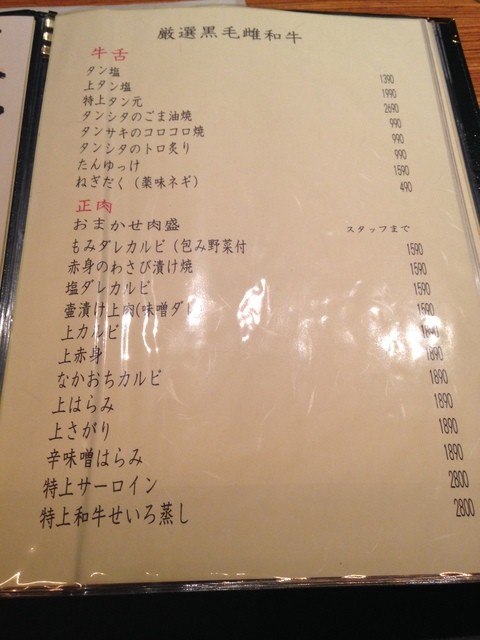 厳選黒毛雌和牛
牛舌
タン塩 1390
上タン塩 1990
特上タン元 2690
タンシタのごま油焼 990
タンサキのコロコロ焼 990
タンシタのトロ炙り 990
たんゆっけ 1590
ねぎだく（薬味ネギ） 490
正肉
おまかせ肉盛 スタッフまで
もみダレカルビ（包み野菜付 1590
赤身のわさび漬け焼 1590
塩ダレカルビ 1590
壷漬け上肉(味噌ダレ 1590
上カルビ 1890
上赤身 1890
なかおちカルビ 1890
上はらみ 1890
上さがり 1890
辛味噌はらみ 1890
特上サーロイン 2800
特上和牛せいろ蒸し 2800